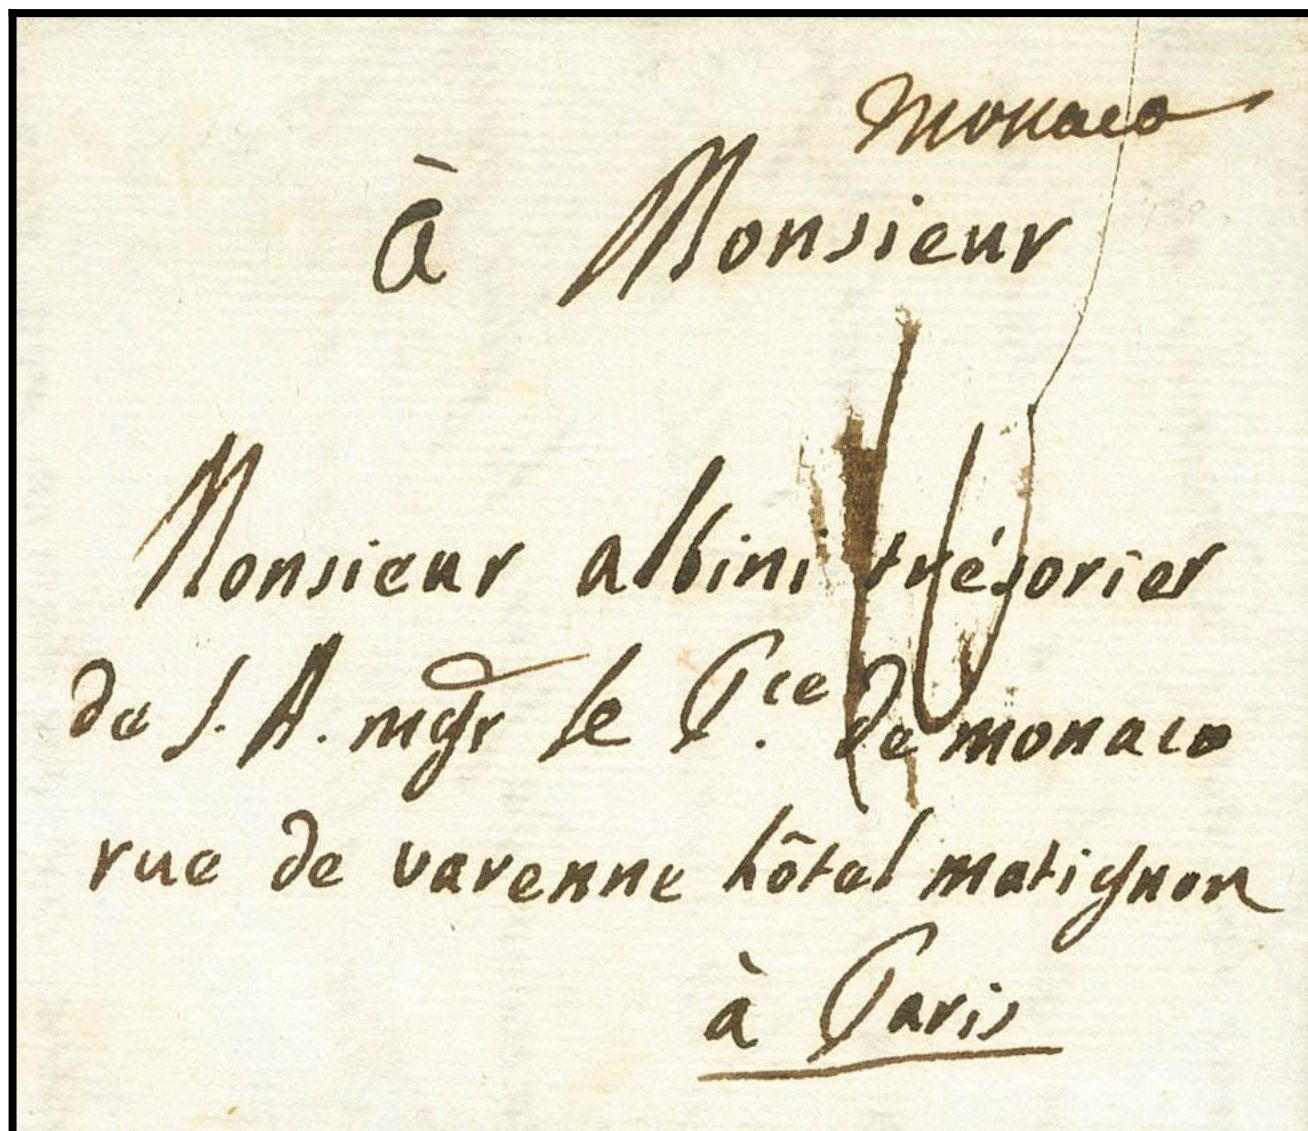 Monaco
à Monsieur
Monsieur albini trésorier
de S. A. mgr le P.ce de monaco
rue de varenne hôtel matignon
à Paris